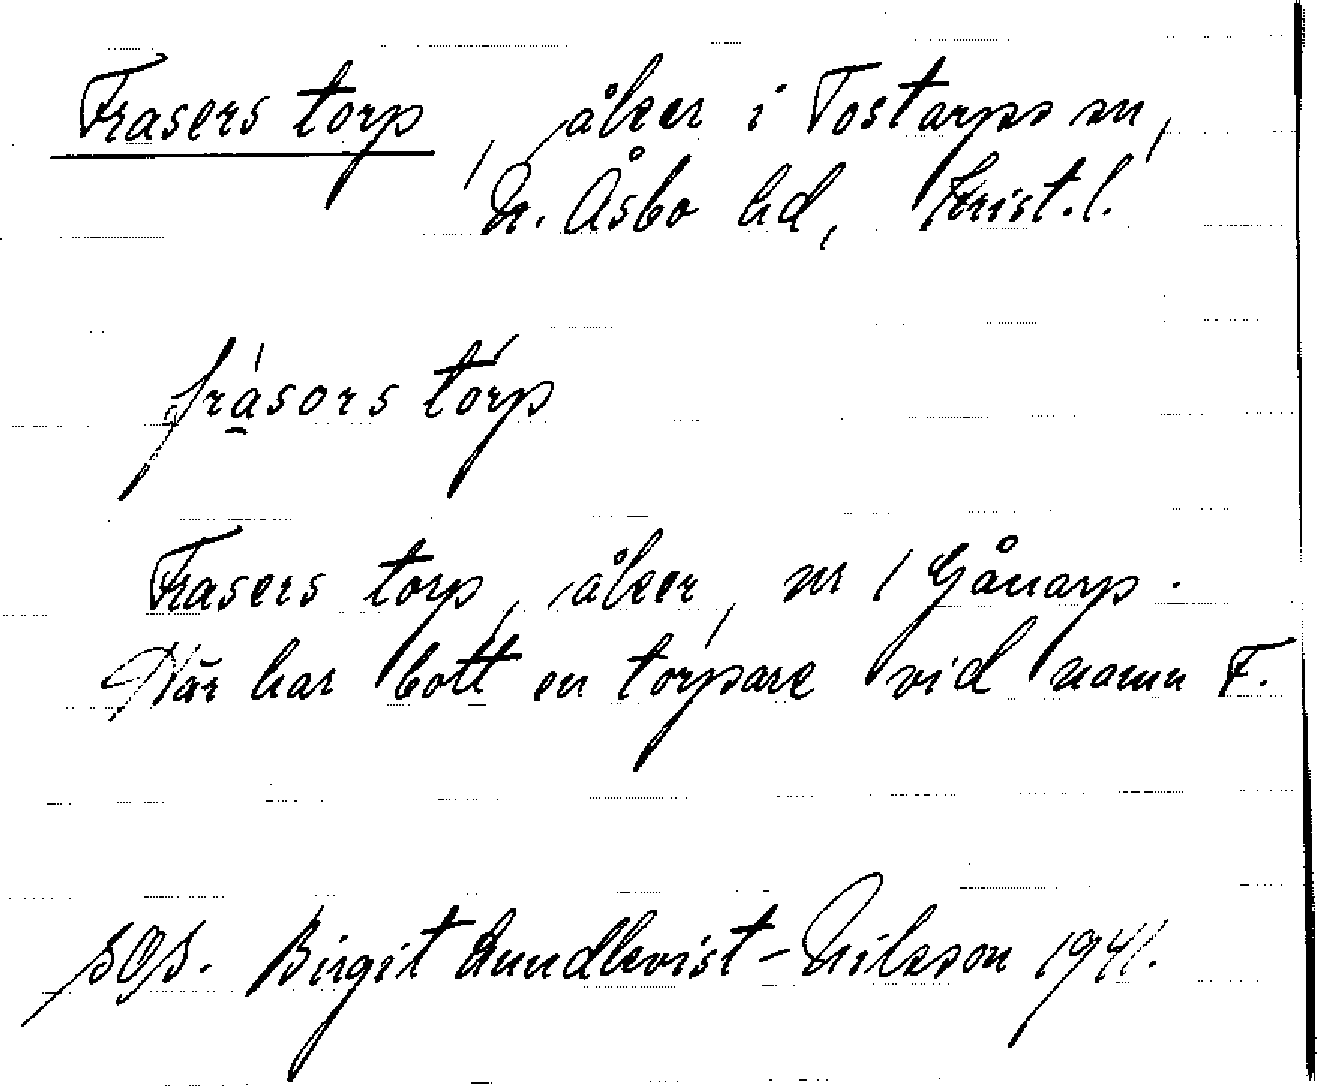 Frasers torp, åker i Tostarps sn,
N. Åsbo hd, Krist. l.
frásors tórp
Frasers torp, åker, nr 1 Gånarp.
När har bott en torpare vid namn F.
SOS. Birgit Lundkvist-Nilsson 1941.